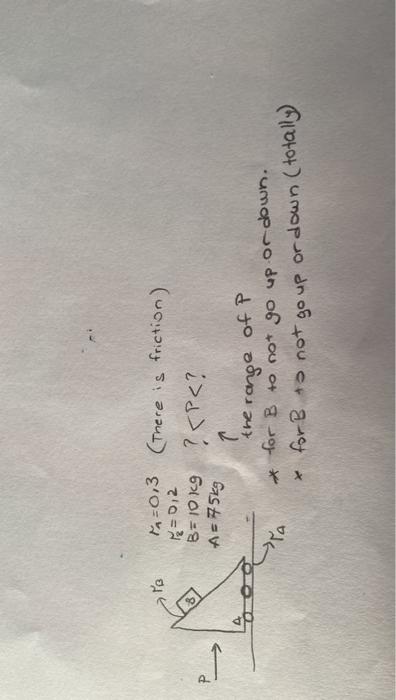 μA=0,3 (There is friction)
μB=0,2
B=10kg ?<P<?
A=75kg
the range of P
* for B to not go up or down.
* for B to not go up or down (totally)
P
μB
B
A
μA